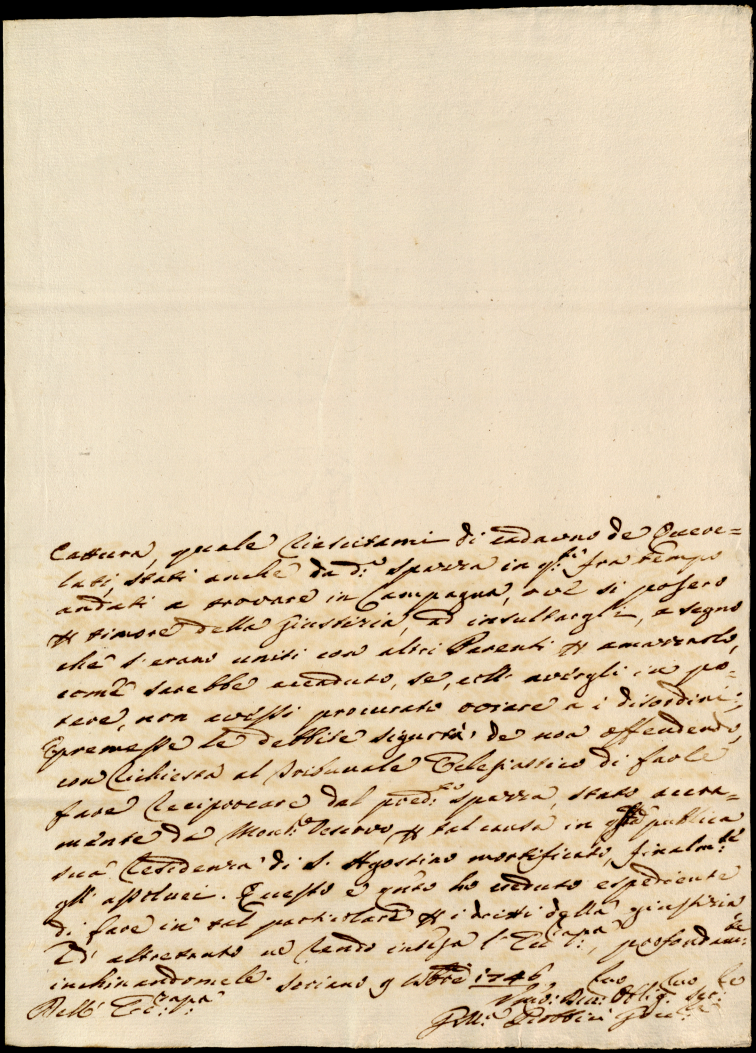 Cattura, quale riescitami di cadauno de Quere=
lati, stati anche da d.º Sparza in q.to fra tempo
andati a trovare in Campagna, ove si posero
p timore della Giustizia, ad insultargli, a segno
che s'erano uniti con altri Parenti p amazzarlo,
come sarebbe accaduto, se, coll'avergli in po=
tere, non avessi procurato oviare a i disordini;
E premesse le debbite sigurtà de non offendendo,
con richiesta al Tribunale Eclesiastico di farle
fare reciprocare dal pred.to Sparza, stato acerra=
mante da Mons.r Vescovo, p tal causa in q.sta publica
sua residenza di S. Agostino mortificato, finalm.te
gl'assoluei. Questo è q.nto ho creduto espediente
di fare in tal particolare p i dritti della giustizia
Ed altretanto ne rendo intesa l'Ecc.za p.a, profondam.te
inchinandomele. Soriano 9 Mbre 1746
Dell' Ecc.za p.a
Umo Dev. Oblig. Ser.